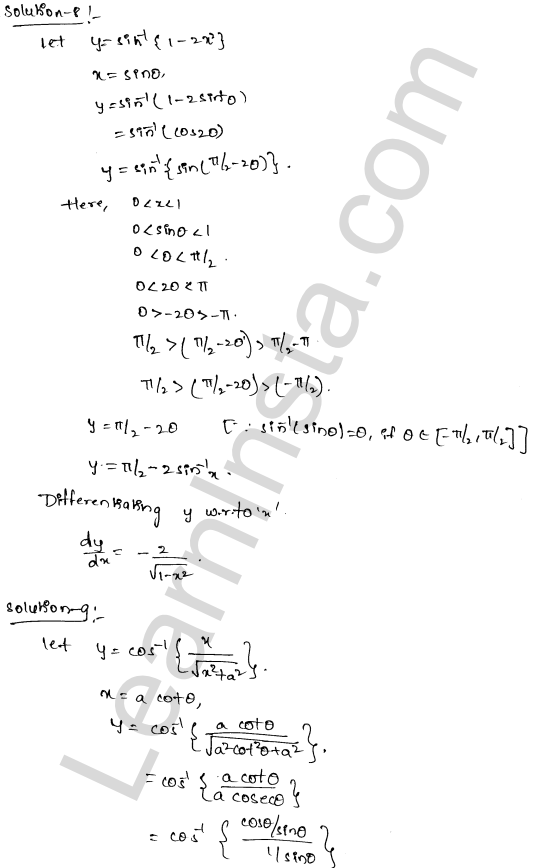 Solution-8:-
Let y = sin⁻¹{1-2x²}
x = sinθ,
y = sin⁻¹(1-2sin²θ)
= sin⁻¹(cos2θ)
y = sin⁻¹{sin(π/2-2θ)}.
Here, 0<x<1
0<sinθ<1
0<θ<π/2.
0<2θ<π
0>-2θ>-π.
π/2>(π/2-2θ)>π/2-π
π/2>(π/2-2θ)>(-π/2).
y = π/2-2θ [∵ sin⁻¹(sinθ)=θ, if θ∈[-π/2, π/2]]
y = π/2-2sin⁻¹x.
Differentiating y w.r.to 'x'.
dy/dx = -2/√1-x².
Solution-9:-
Let y = cos⁻¹{x/√x²+a²}.
x = a cotθ,
y = cos⁻¹{a cotθ/√a²cot²θ+a²}.
= cos⁻¹{a cotθ/a cosecθ}
= cos⁻¹{cosθ/sinθ/1/sinθ}
LearnInsta.com